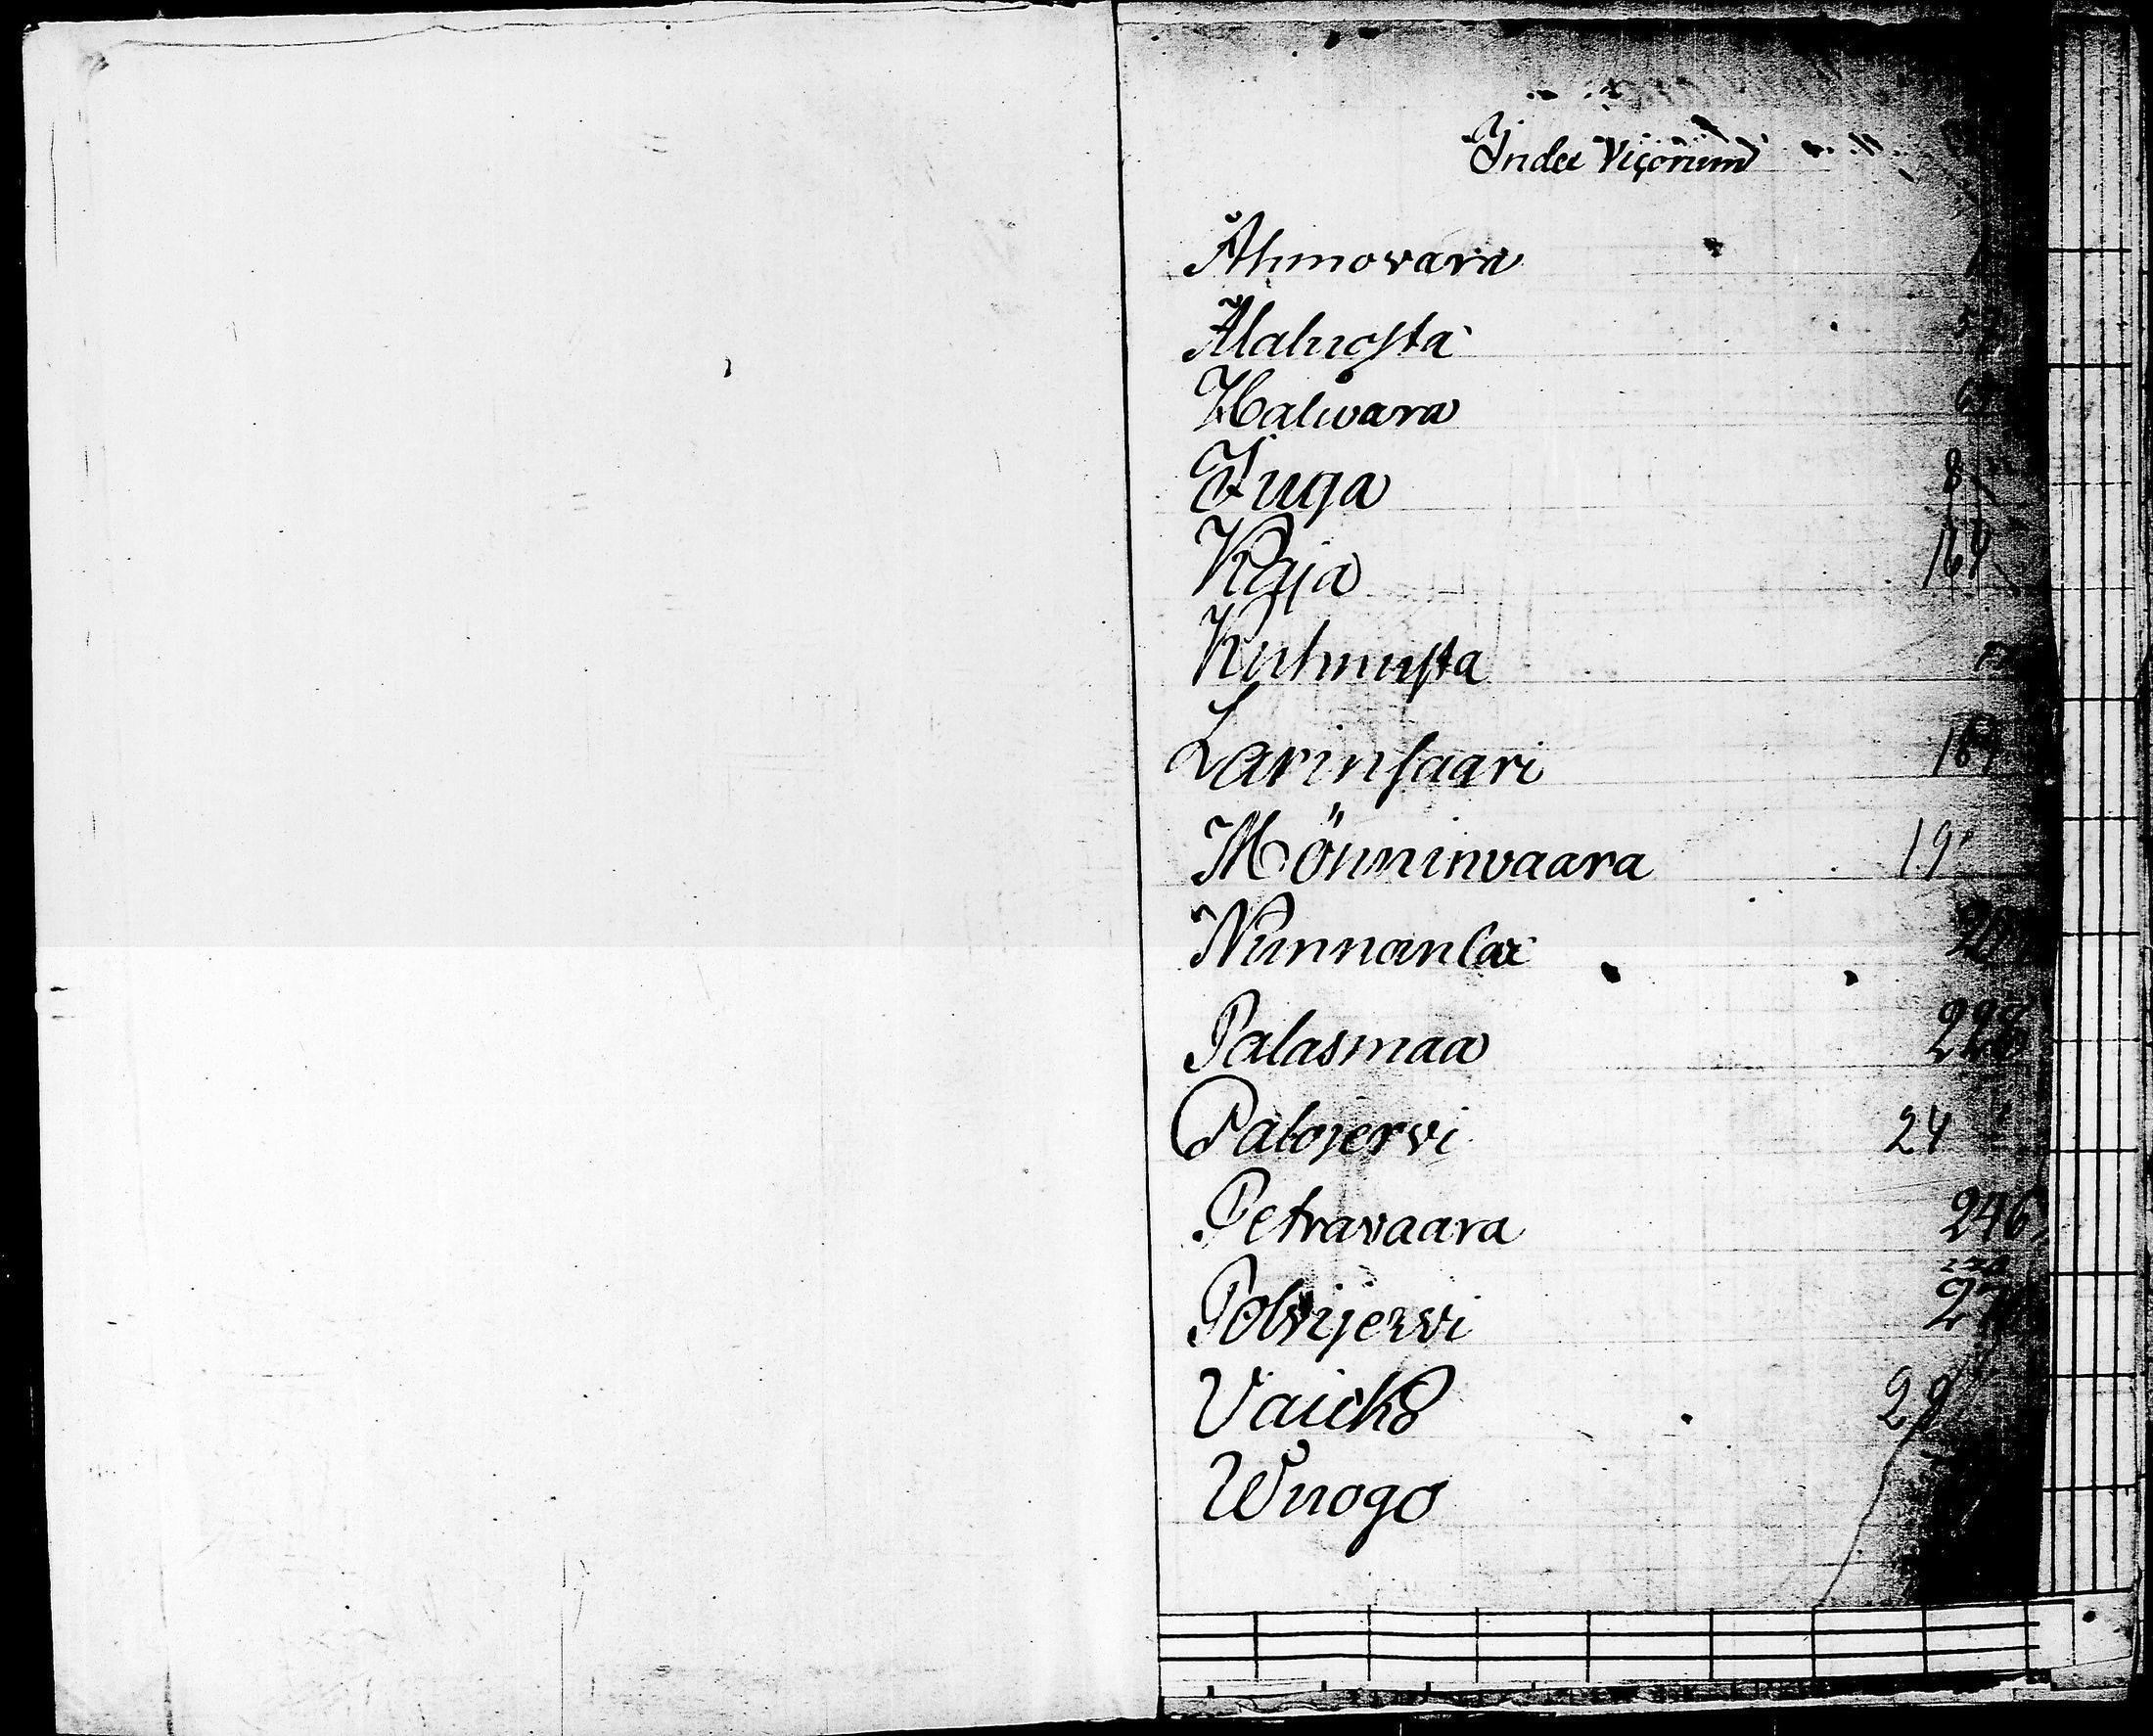 Index Vicorum
Ahmovara
Alaluosta
Halivara
Juga
Kaja 164
Kuhnusta
Larinsaari 189
Mönninvaara 19
Nunnanlax
Palasmaa 228
Palojervi 24
Petravaara 246
Polvijervi
Vaicko 29
Wuogo